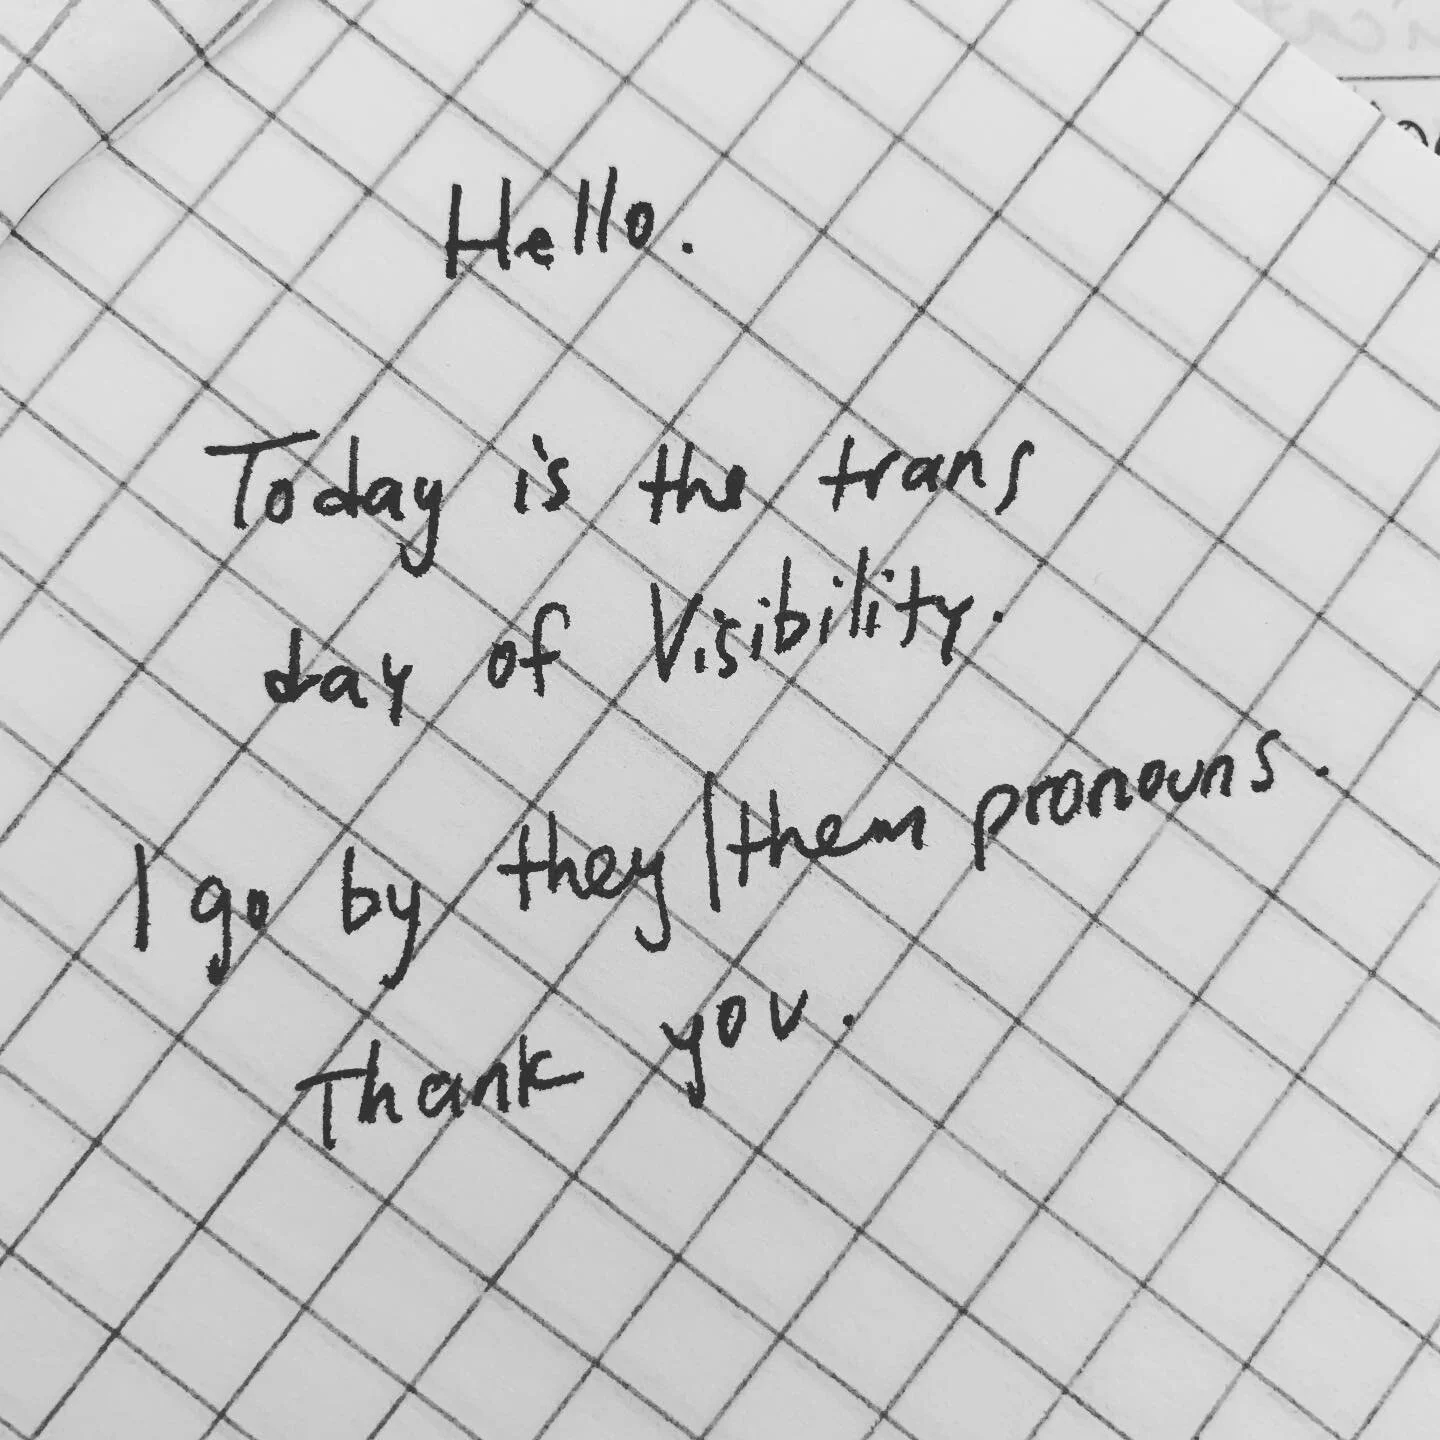 Hello.
Today is the trans
day of Visibility.
I go by they/them pronouns.
Thank you.